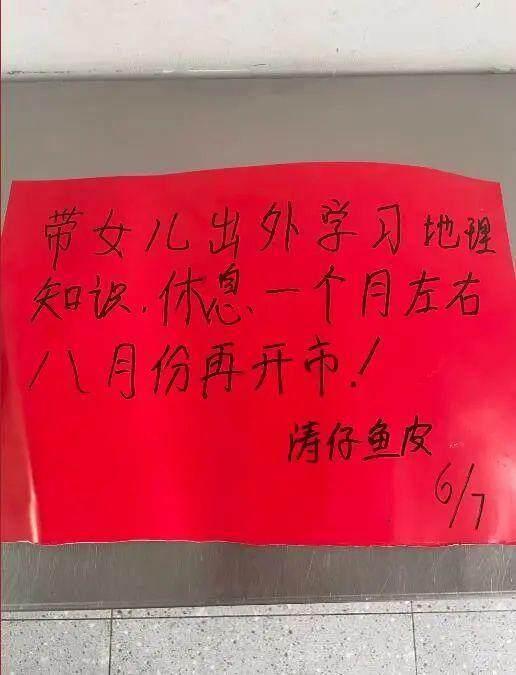 带女儿出外学习地理
知识.休息一个月左右
八月份再开市.!
涛仔鱼皮
6/7